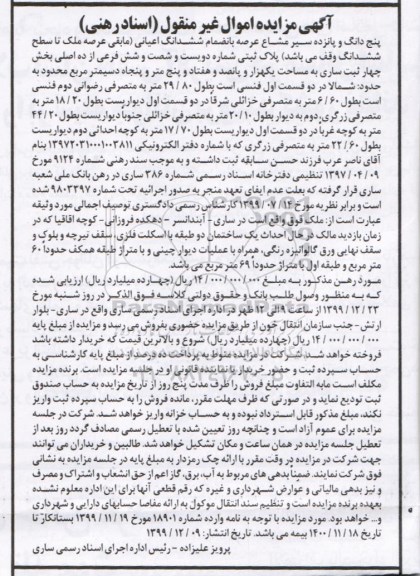 آگهی مزایده اموال غیر منقول (اسناد رهنی)
پنج دانگ و پانزده سیر مشاع عرصه بانضمام ششدانگ اعیانی (مابقی عرصه ملک تا سطح
ششدانگ وقف می باشد) پلاک ثبتی شماره دویست و شصت و شش فرعی از ده اصلی بخش
چهار ثبت ساری به مساحت یکهزار و پانصد و هفتاد و پنج متر و پنجاه دسیمتر مربع محدود به
حدود: شمالا در دو قسمت اول فنسی است بطول ۸۰ / ۲۹ متر به متصرفی رضوانی دوم فنسی
است بطول ۶۰ / ۶ متر به متصرفی خزائلی شرقاً در دو قسمت اول دیواریست بطول ۲۰ / ۱۸ متر به
متصرفی زرگری، دوم به دیوار بطول ۱۰ / ۲۰ متر به متصرفی خزائلی جنوباً دیواریست بطول ۲۰ / ۴۴
متر به کوچه غرباً در دو قسمت اول دیواریست بطول ۷۰ / ۱۷ متر به کوچه احداثی دوم دیواریست
بطول ۶۰ / ۲۲ متر به متصرفی زرگری که با شماره دفتر الکترونیکی ۱۳۹۷۲۰۳۱۰۰۰۱۰۰۳۸۱۱ بنام
آقای ناصر عرب فرزند حسن سابقه ثبت داشته و به موجب سند رهنی شماره ۹۱۲۴ مورخ
۰۹ / ۰۴ / ۱۳۹۷ تنظیمی دفترخانه اسناد رسمی شماره ۳۸۶ ساری در رهن بانک ملی شعبه
ساری قرار گرفته که بعلت عدم ایفای تعهد منجر به صدور اجرائیه تحت شماره ۹۸۰۳۲۹۷ شده
است و برابر نظریه مورخ ۱۴ / ۰۷ / ۱۳۹۹ کارشناس رسمی دادگستری توصیف اجمالی مورد وثیقه
عبارت است از: ملک فوق واقع است در ساری - آبندانسر - دهکده فروزانی - کوچه اقاقیا که در
زمان بازدید مالک در حال احداث یک ساختمان دو طبقه با اسکلت فلزی، سقف تیرچه و بلوک و
سقف نهایی ورق گالوانیزه رنگی، همراه با عملیات دیوار چینی و با متراژ طبقه همکف حدوداً ۶۰
متر مربع و طبقه اول با متراژ حدوداً ۶۹ متر مربع می باشد.
مورد رهن مذکور به مبلغ ۰۰۰ / ۰۰۰ / ۰۰۰ / ۱۴ ریال (چهارده میلیارد ریال) ارزیابی شده
که به منظور وصول طلب بانک و حقوق دولتی کلاسه فوق الذکر در روز شنبه مورخ
۲۳ / ۱۲ / ۱۳۹۹ از ساعت ۹ الی ۱۲ ظهر در اداره اجرای اسناد رسمی ساری واقع در ساری - بلوار
ارتش - جنب سازمان انتقال خون از طریق مزایده حضوری بفروش می رسد و مزایده از مبلغ پایه
۰۰۰ / ۰۰۰ / ۰۰۰ / ۱۴ ریال (چهارده میلیارد ریال) شروع و بالاترین قیمت که خریدار داشته باشد
فروخته خواهد شد. شرکت در مزایده منوط به پرداخت ده درصد از مبلغ پایه کارشناسی به
حساب سپرده ثبت و حضور خریدار یا نماینده قانونی او در جلسه مزایده است. برنده مزایده
مکلف است مابه التفاوت مبلغ فروش را ظرف مدت پنج روز از تاریخ مزایده به حساب صندوق
ثبت تودیع نماید و در صورتی که ظرف مهلت مقرر، مانده فروش را به حساب سپرده ثبت واریز
نکند، مبلغ مذکور قابل استرداد نبوده و به حساب خزانه واریز خواهد شد. شرکت در جلسه
مزایده برای عموم آزاد است و چنانچه روز تعیین شده با تعطیل رسمی مصادف گردد روز بعد از
تعطیل جلسه مزایده در همان ساعت و مکان تشکیل خواهد شد. طالبین و خریداران می توانند
جهت شرکت در مزایده در وقت مقرر با ارائه چک رمزدار به مبلغ پایه در جلسه مزایده به نشانی
فوق شرکت نمایند. ضمناً بدهی های مربوط به آب، برق، گاز اعم از حق انشعاب و اشتراک و مصرف
و نیز بدهی مالیاتی و عوارض شهرداری و غیره که رقم قطعی آنها برای این اداره معلوم نشده
بعهده برنده مزایده است و تنظیم سند انتقال موکول به ارائه مفاصا حسابهای دارایی و شهرداری
و... خواهد بود. مورد مزایده با توجه به نامه وارده شماره ۱۸۹۰۱ مورخ ۱۹ / ۱۱ / ۱۳۹۹ بستانکار تا
تاریخ ۱۸ / ۱۱ / ۱۴۰۰ بیمه می باشد. تاریخ انتشار: ۰۹ / ۱۲ / ۱۳۹۹
پرویز علیزاده - رئیس اداره اجرای اسناد رسمی ساری